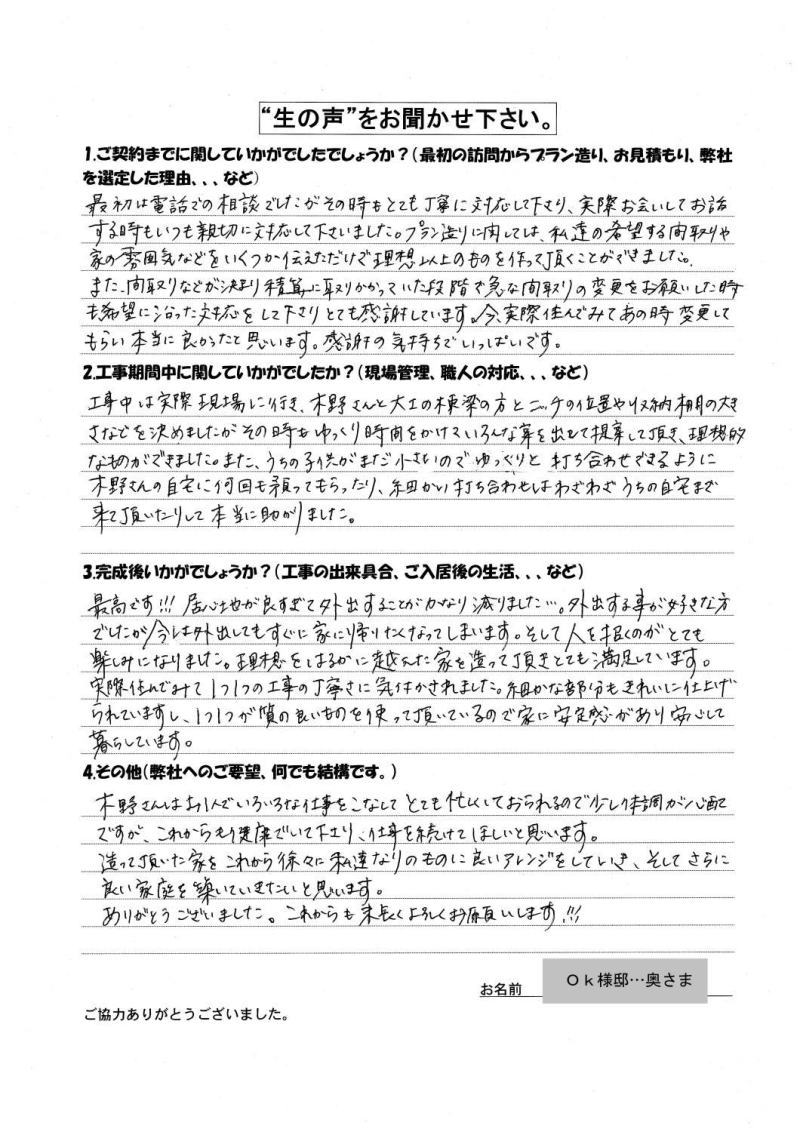 “生の声”をお聞かせ下さい。
1.ご契約までに関していかがでしたでしょうか？（最初の訪問からプラン造り、お見積もり、弊社
を選定した理由、、、など）
最初は電話での相談でしたがその時もとても丁寧に対応して下さり、実際お会いしてお話
する時もいつも親切に対応して下さいました。プラン造りに関しては、私達の希望する間取りや
家の雰囲気などをいくつか伝えただけで理想以上のものを作って頂くことができました。
また、間取りなどが決まり積算に取りかかっていた段階で急な間取りの変更をお願いした時
も希望に沿った対応をして下さりとても感謝しています。今、実際住んでみてあの時変更して
もらい本当に良かったと思います。感謝の気持ちでいっぱいです。
2.工事期間中に関していかがでしたか？（現場管理、職人の対応、、、など）
工事中は実際現場に行き、木野さんと大工の棟梁の方とニッチの位置や収納棚の大き
さなどを決めましたがその時もゆっくり時間をかけていろんな案を出して提案して頂き、理想的
なものができました。また、うちの子供がまだ小さいのでゆっくりと打ち合わせできるように
木野さんの自宅に何回も預ってもらったり、細かい打ち合わせはわざわざうちの自宅まで
来て頂いたりして本当に助かりました。
3.完成後いかがでしょうか？（工事の出来具合、ご入居後の生活、、、など）
最高です!!! 居心地が良すぎて外出することがかなり減りました…。外出する事が好きな方
でしたが今は外出してもすぐに家に帰りたくなってしまいます。そして人を招くのがとても
楽しみになりました。理想をはるかに越えた家を造って頂きとても満足しています。
実際住んでみて1つ1つの工事の丁寧さに気付かされました。細かな部分もきれいに仕上げ
られていますし、1つ1つが質の良いものを使って頂いているので家に安定感があり安心して
暮らしています。
4.その他（弊社へのご要望、何でも結構です。）
木野さんはお1人でいろいろな仕事をこなしてとても忙しくしておられるので少し体調が心配
ですが、これからも健康でいて下さり、仕事を続けてほしいと思います。
造って頂いた家をこれから徐々に私達なりのものに良いアレンジをしていき、そしてさらに
良い家庭を築いていきたいと思います。
ありがとうございました。これからも末長くよろしくお願いします!!!
お名前 Ｏｋ様邸…奥さま
ご協力ありがとうございました。